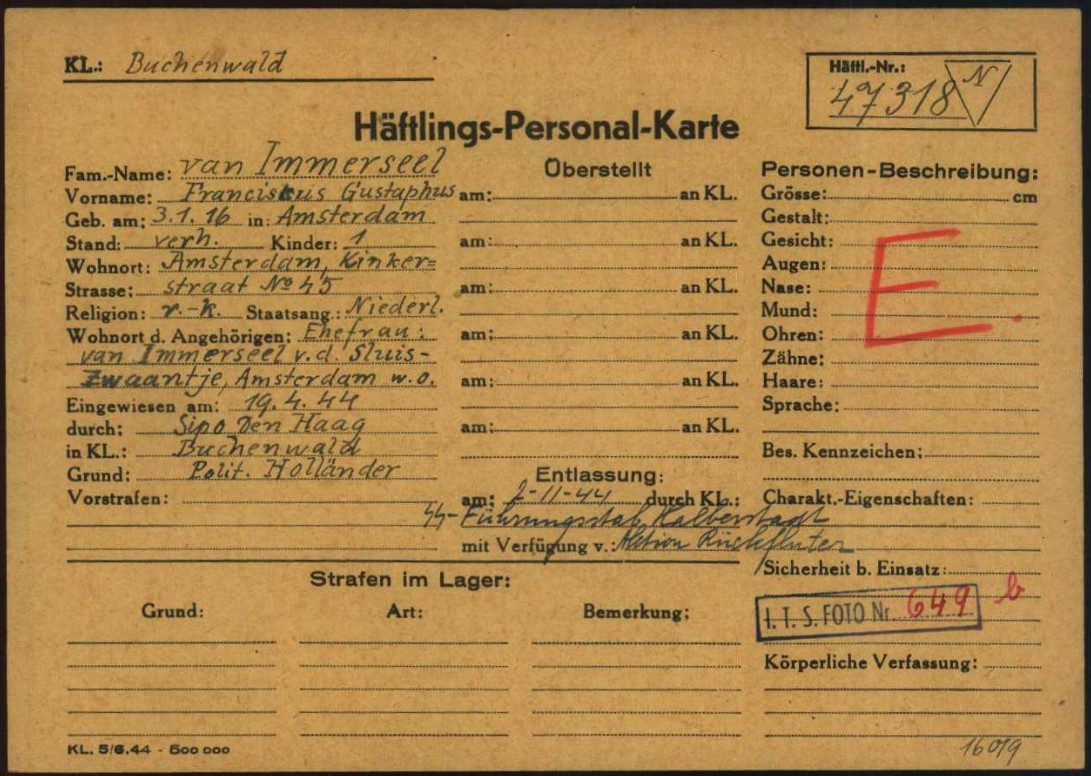 KL.: Buchenwald
Häftl.-Nr.:
47318 N
Häftlings-Personal-Karte
Fam.-Name: van Immerseel
Vorname: Franciskus Gustaphus
Geb. am: 3.1.16 in: Amsterdam
Stand: verh. Kinder: 1
Wohnort: Amsterdam, Kinker=
Strasse: straat No 45
Religion: r.-k. Staatsang.: Niederl.
Wohnort d. Angehörigen: Ehefrau:
van Immerseel v.d. Sluis-
Zwaantje, Amsterdam w.o.
Eingewiesen am: 19.4.44
durch: Sipo Den Haag
in KL.: Buchenwald
Grund: Polit. Holländer
Vorstrafen:
Überstellt
am: an KL.
am: an KL.
am: an KL.
am: an KL.
am: an KL.
am: an KL.
Entlassung:
am: 2-11-44 durch KL.:
SS-Führungsstab Halberstadt
mit Verfügung v.: Aktion
Personen-Beschreibung:
Grösse: cm
Gestalt:
Gesicht:
Augen:
Nase:
Mund:
Ohren:
Zähne:
Haare:
Sprache:
E.
Bes. Kennzeichen:
Charakt.-Eigenschaften:
Sicherheit b. Einsatz:
I. T. S. FOTO Nr. 649 b
Körperliche Verfassung:
Strafen im Lager:
Grund: Art: Bemerkung:
KL. 5/6.44 - 500 000
16019